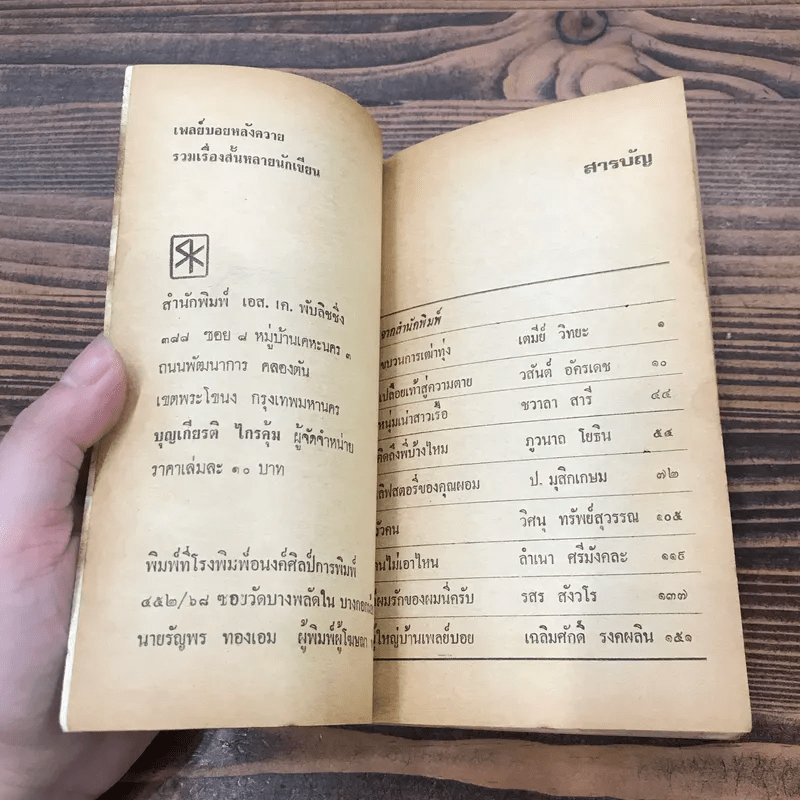 เพลย์บอยหลังควาย
รวมเรื่องสั้นหลายนักเขียน
SK
สำนักพิมพ์ เอส. เค. พับลิชชิ่ง
๓๘๘ ซอย ๘ หมู่บ้านเคหะนคร ๓
ถนนพัฒนาการ คลองตัน
เขตพระโขนง กรุงเทพมหานคร
บุญเกียรติ ไกรคุ้ม ผู้จัดจำหน่าย
ราคาเล่มละ ๑๐ บาท
พิมพ์ที่โรงพิมพ์อนงค์ศิลป์การพิมพ์
๔๕๒/๖๘ ซอยวัดบางพลัดใน
นายรัญพร ทองเอม ผู้พิมพ์ผู้โฆษณา
สารบัญ
จากสำนักพิมพ์
ขบวนการเฒ่าทุ่ง เตมีย์ วิทยะ ๑
เปลือยเท้าสู่ความตาย วสันต์ อัครเดช ๑๐
หนุ่มเน่าสาวเรื้อ ชวาลา สารี ๔๔
คิดถึงพี่บ้างไหม ภูวนาถ โยธิน ๕๔
ลิฟสตอรี่ของคุณผอม ป. มุสิกเกษม ๗๒
วิศนุ ทรัพย์สุวรรณ ๑๐๕
ลำเนา ศรีมังคละ ๑๑๙
ผมรักของผมนี่ครับ รสร สังวโร ๑๓๗
ใหญ่บ้านเพลย์บอย เฉลิมศักดิ์ รงคผลิน ๑๕๑